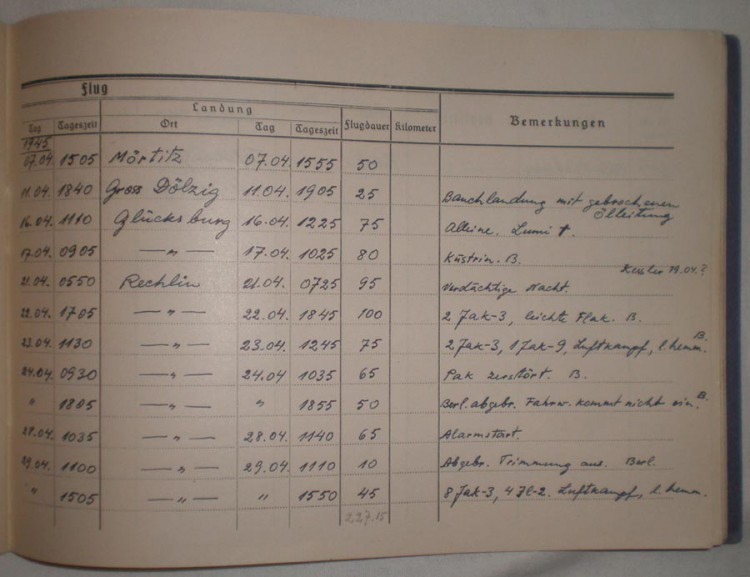 Flug
Landung
Tag Tageszeit Ort Tag Tageszeit Flugdauer Kilometer Bemerkungen
1945
07.04. 1505 Mörtitz 07.04. 1555 50
11.04. 1840 Gross Dölzig 11.04. 1905 25 Bauchlandung mit gebrochenen
Ölleitung
16.04. 1110 Glücksburg 16.04. 1225 75 Alleine. Lumi †.
17.04. 0905 — " — 17.04. 1025 80 Küstrin. B.
Kessler 19.04.?
21.04. 0550 Rechlin 21.04. 0725 95 Verdächtige Nacht.
22.04. 1705 — " — 22.04. 1845 100 2 Jak-3, leichte Flak. B.
23.04. 1130 — " — 23.04. 1245 75 2 Jak-3, 1 Jak-9, Luftkampf, l. hemm. B.
24.04. 0930 — " — 24.04 1035 65 Pak zerstört. B.
" 1805 — " — " 1855 50 Berl. abgebr. Fahrw. kommt nicht ein. B.
28.04. 1035 — " — 28.04. 1140 65 Alarmstart.
29.04. 1100 — " — 29.04. 1110 10 Abgebr. Trimmung aus. Berl.
" 1505 — " — " 1550 45 8 Jak-3, 4 Il-2. Luftkampf, l. hemm.
227.15